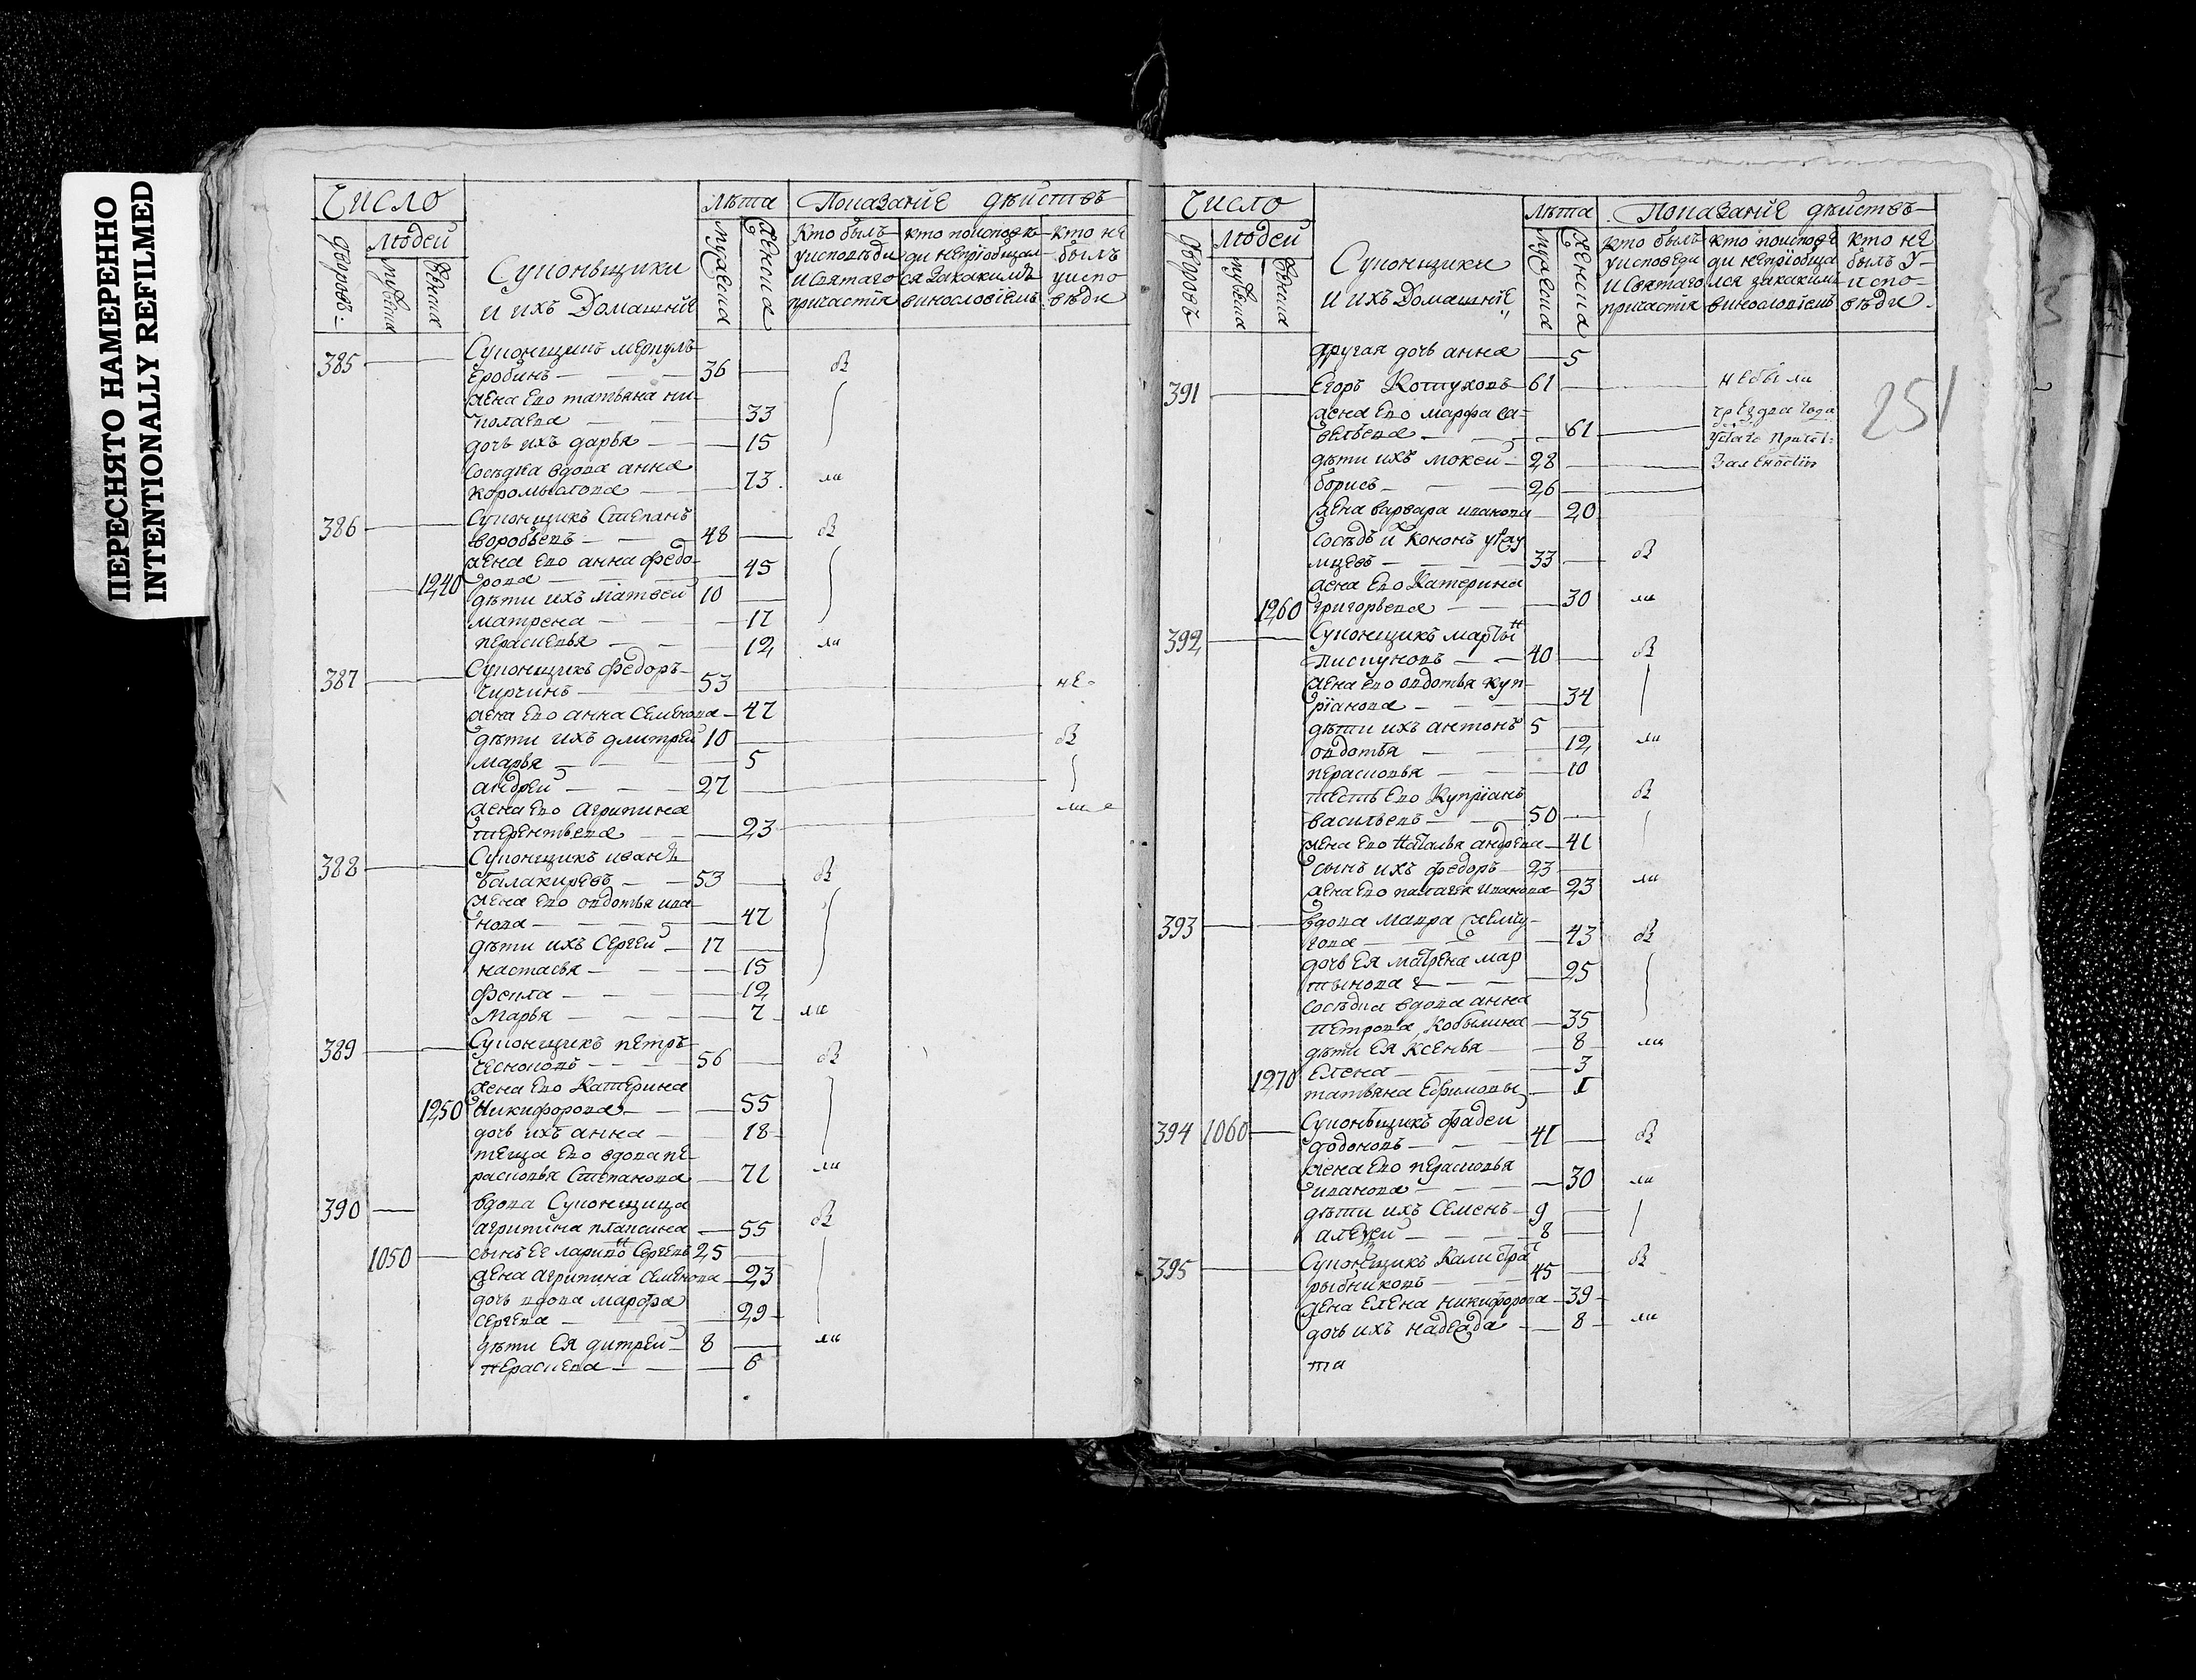 ПЕРЕСНЯТО НАМЕРЕННО
INTENTIONALLY REFILMED
Число
Лѣта
Показанїе дѣиствъ
Людей
дворовъ
мужеска
женска
Суконьщики
и ихъ Домашнїе
мужеска
женска
кто былъ
уисповѣди
и святаго
причастїя
кто поисповѣ
ди непрїобщал
ся закакимъ
винословїемъ
кто не
былъ
уиспо
вѣди
385
Суконщикъ меркулъ
Еробинъ 36
жена Ево татьяна ни
колаева 33
дочь ихъ дарья 15
сосѣдка вдова анна
коромыслова 73
386
Суконщикъ Степанъ
воробьевъ 48
жена Ево анна федо
1240 рова 45
дѣти ихъ матвей 10
матрена 17
перасковья 12
387
Суконщикъ федоръ
чирчинъ 53 не
жена Ево анна Семенова 47
дѣти ихъ дмитрей 10
марья 5
андрей 27
жена Ево Агрипина
терентьева 23
388
Суконщикъ иванъ
балакиревъ 53
жена Ево овдотья ива
нова 47
дѣти ихъ Сергей 17
настасья 15
фекла 12
Марья 7
389
Суконщикъ петръ
чесноковъ 56
жена Ево Катерина
1250 Никифорова 55
дочь ихъ анна 18
теща Ево вдова пе
расковья Степанова 71
390
вдова Суконщица
агрипина плаксина 55
1050 сынъ Ее ларионъ Сергеевъ 25
жена агрипина Семенова 23
дочь вдова марфа
сергева 29
дѣти Ея дитрей 8
Пераскева 6
Число
Лѣта
Показанїе дѣйствъ
Людей
дворовъ
мужеска
женска
Суконщики
и ихъ Домашнїе
мужеска
женска
кто былъ
уисповеди
и святаго
причастїя
кто поисповѣ
ди непрїобща
лся закакимъ
винословїемъ
кто не
былъ у
испо
вѣди
251
другая дочь анна 5
391 Егоръ Котуховъ 61 небыли
жена Ево марфа са
вельева 61
дѣти ихъ мокей 28
борисъ 26
жена варвара иванова 20
Сосѣдъ ихъ Кононъ
33
жена Ево Катерина
1260 григорьева 30
392
Суконщикъ мартын
пискуновъ 40
жена Ево овдотья куп
рїанова 34
дѣти ихъ антонъ 5
овдотья 12
перасковья 10
тесть Ево Купрїанъ
васильевъ 50
жена Ево Наталья андрева 41
сынъ ихъ федоръ 23
жена Ево палагея Иванова 23
393
вдова Мавра жемчу
гова 43
дочь Ея матрена мар
тынова 25
сосѣдка вдова анна
Петрова Кобылина 35
дѣти Ея Ксенья 8
1270 Елена 3
татьяна Ефимовы 1
394 1060
Суконьщикъ фадей
додоновъ 41
жена Ево перасковья
иванова 30
дѣти ихъ Семенъ 9
алексей 8
395
Суконщикъ Калистра
рыбниковъ 45
жена Елена никифорова 39
дочь ихъ надежда 8